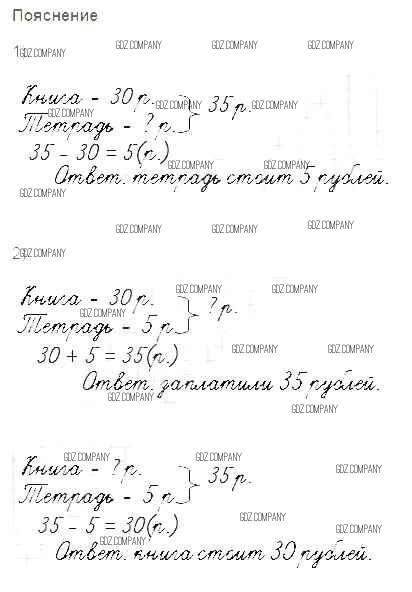 Пояснение
GDZ.COMPANY GDZ.COMPANY GDZ.COMPANY
1. GDZ.COMPANY
Книга – 30 р. GDZ.COMPANY 35 р. GDZ.COMPANY
GDZ.COMPANY
Тетрадь – ? р.
35 – 30 = 5(р.)
GDZ.COMPANY GDZ.COMPANY
Ответ. тетрадь стоит 5 рублей.
GDZ.COMPANY
GDZ.COMPANY GDZ.COMPANY GDZ.COMPANY
2. GDZ.COMPANY
GDZ.COMPANY GDZ.COMPANY
Книга – 30 р. ? р.
GDZ.COMPANY
Тетрадь – 5 р
30 + 5 = 35(р.) GDZ.COMPANY GDZ.COMPANY
Ответ. заплатили 35 рублей.
GDZ.COMPANY
GDZ.COMPANY
GDZ.COMPANY GDZ.COMPANY
Книга – ? р. 35 р. GDZ.COMPANY
GDZ.COMPANY
Тетрадь – 5 р
35 – 5 = 30(р.) GDZ.COMPANY
GDZ.COMPANY GDZ.COMPANY
Ответ. книга стоит 30 рублей.